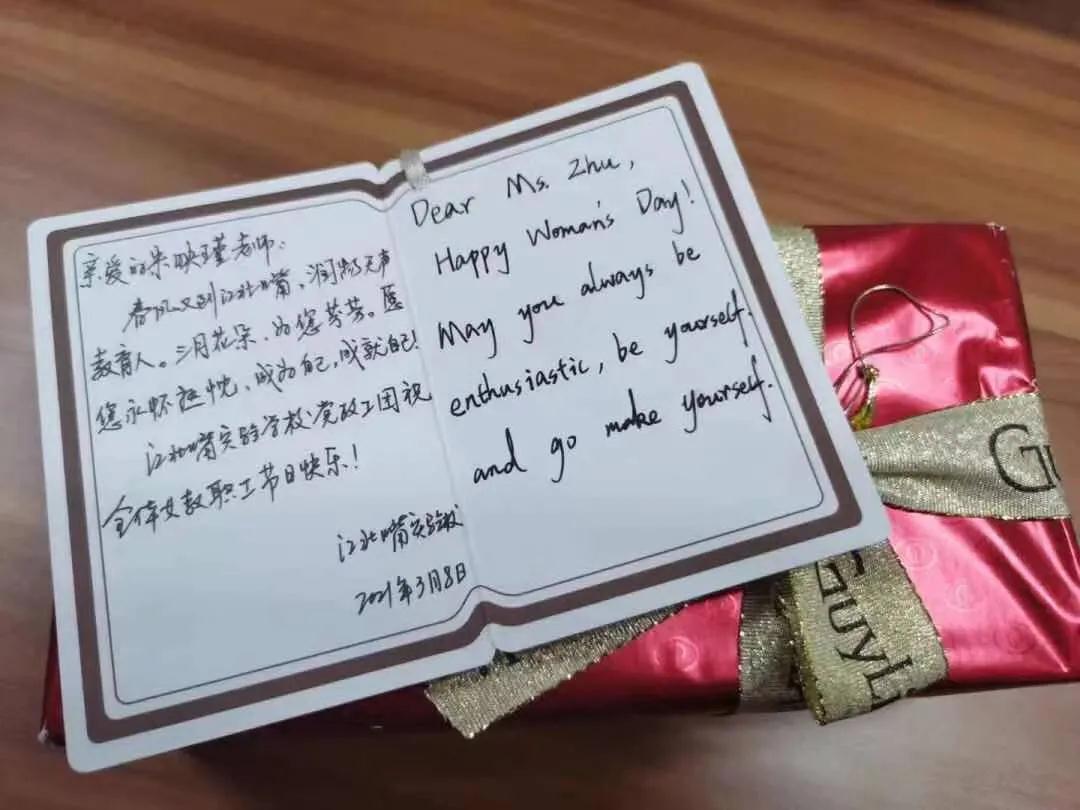 亲爱的朱映瑾老师:
春风又到江北嘴,润物无声
教育人。三月花朵,为您芬芳。愿
您永怀热忱、成为自己,成就自己!
江北嘴实验学校党政工团祝
全体女教职工节日快乐!
江北嘴实验校
2021年3月8日
Dear Ms. Zhu,
Happy Woman's Day!
May you always be
enthusiastic, be yourself.
and go make yourself.
Gu
GuyL